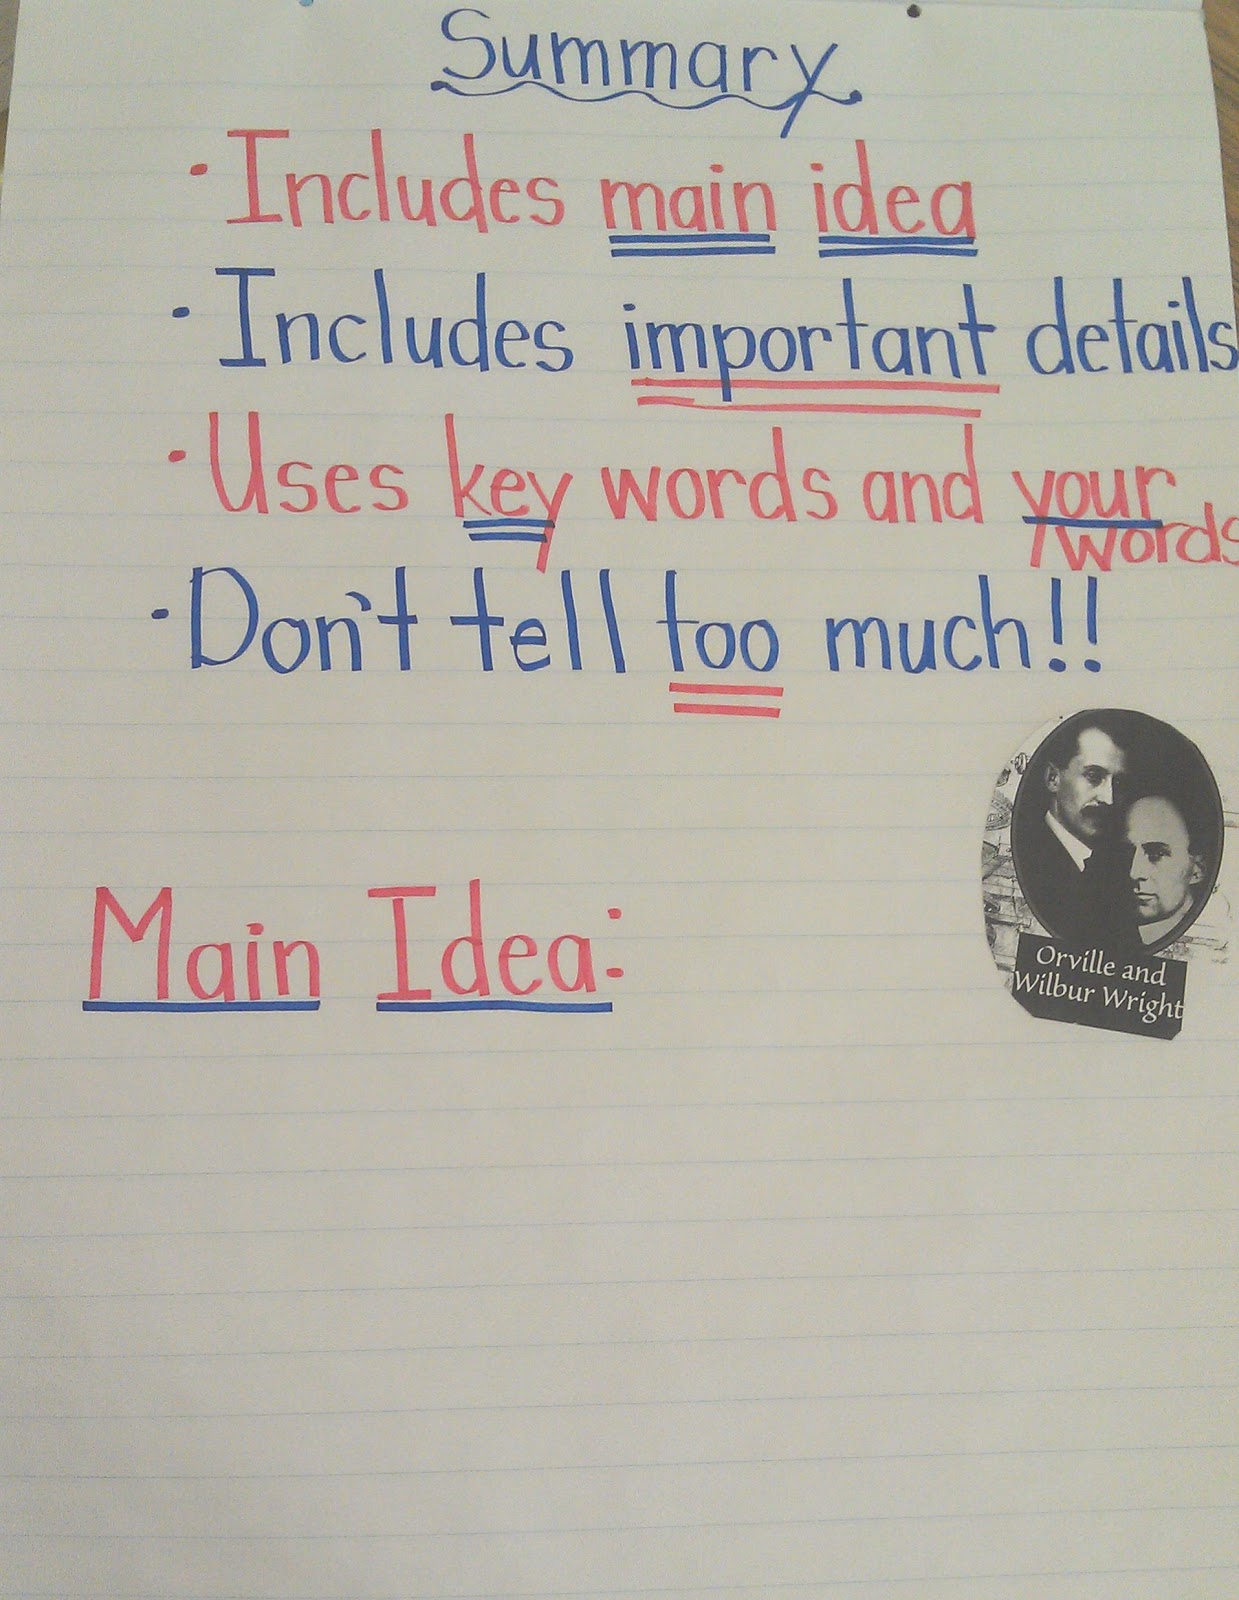 Summary
• Includes main idea
• Includes important details
• Uses key words and your
words
• Don't tell too much!!
Orville and
Wilbur Wright
Main Idea: